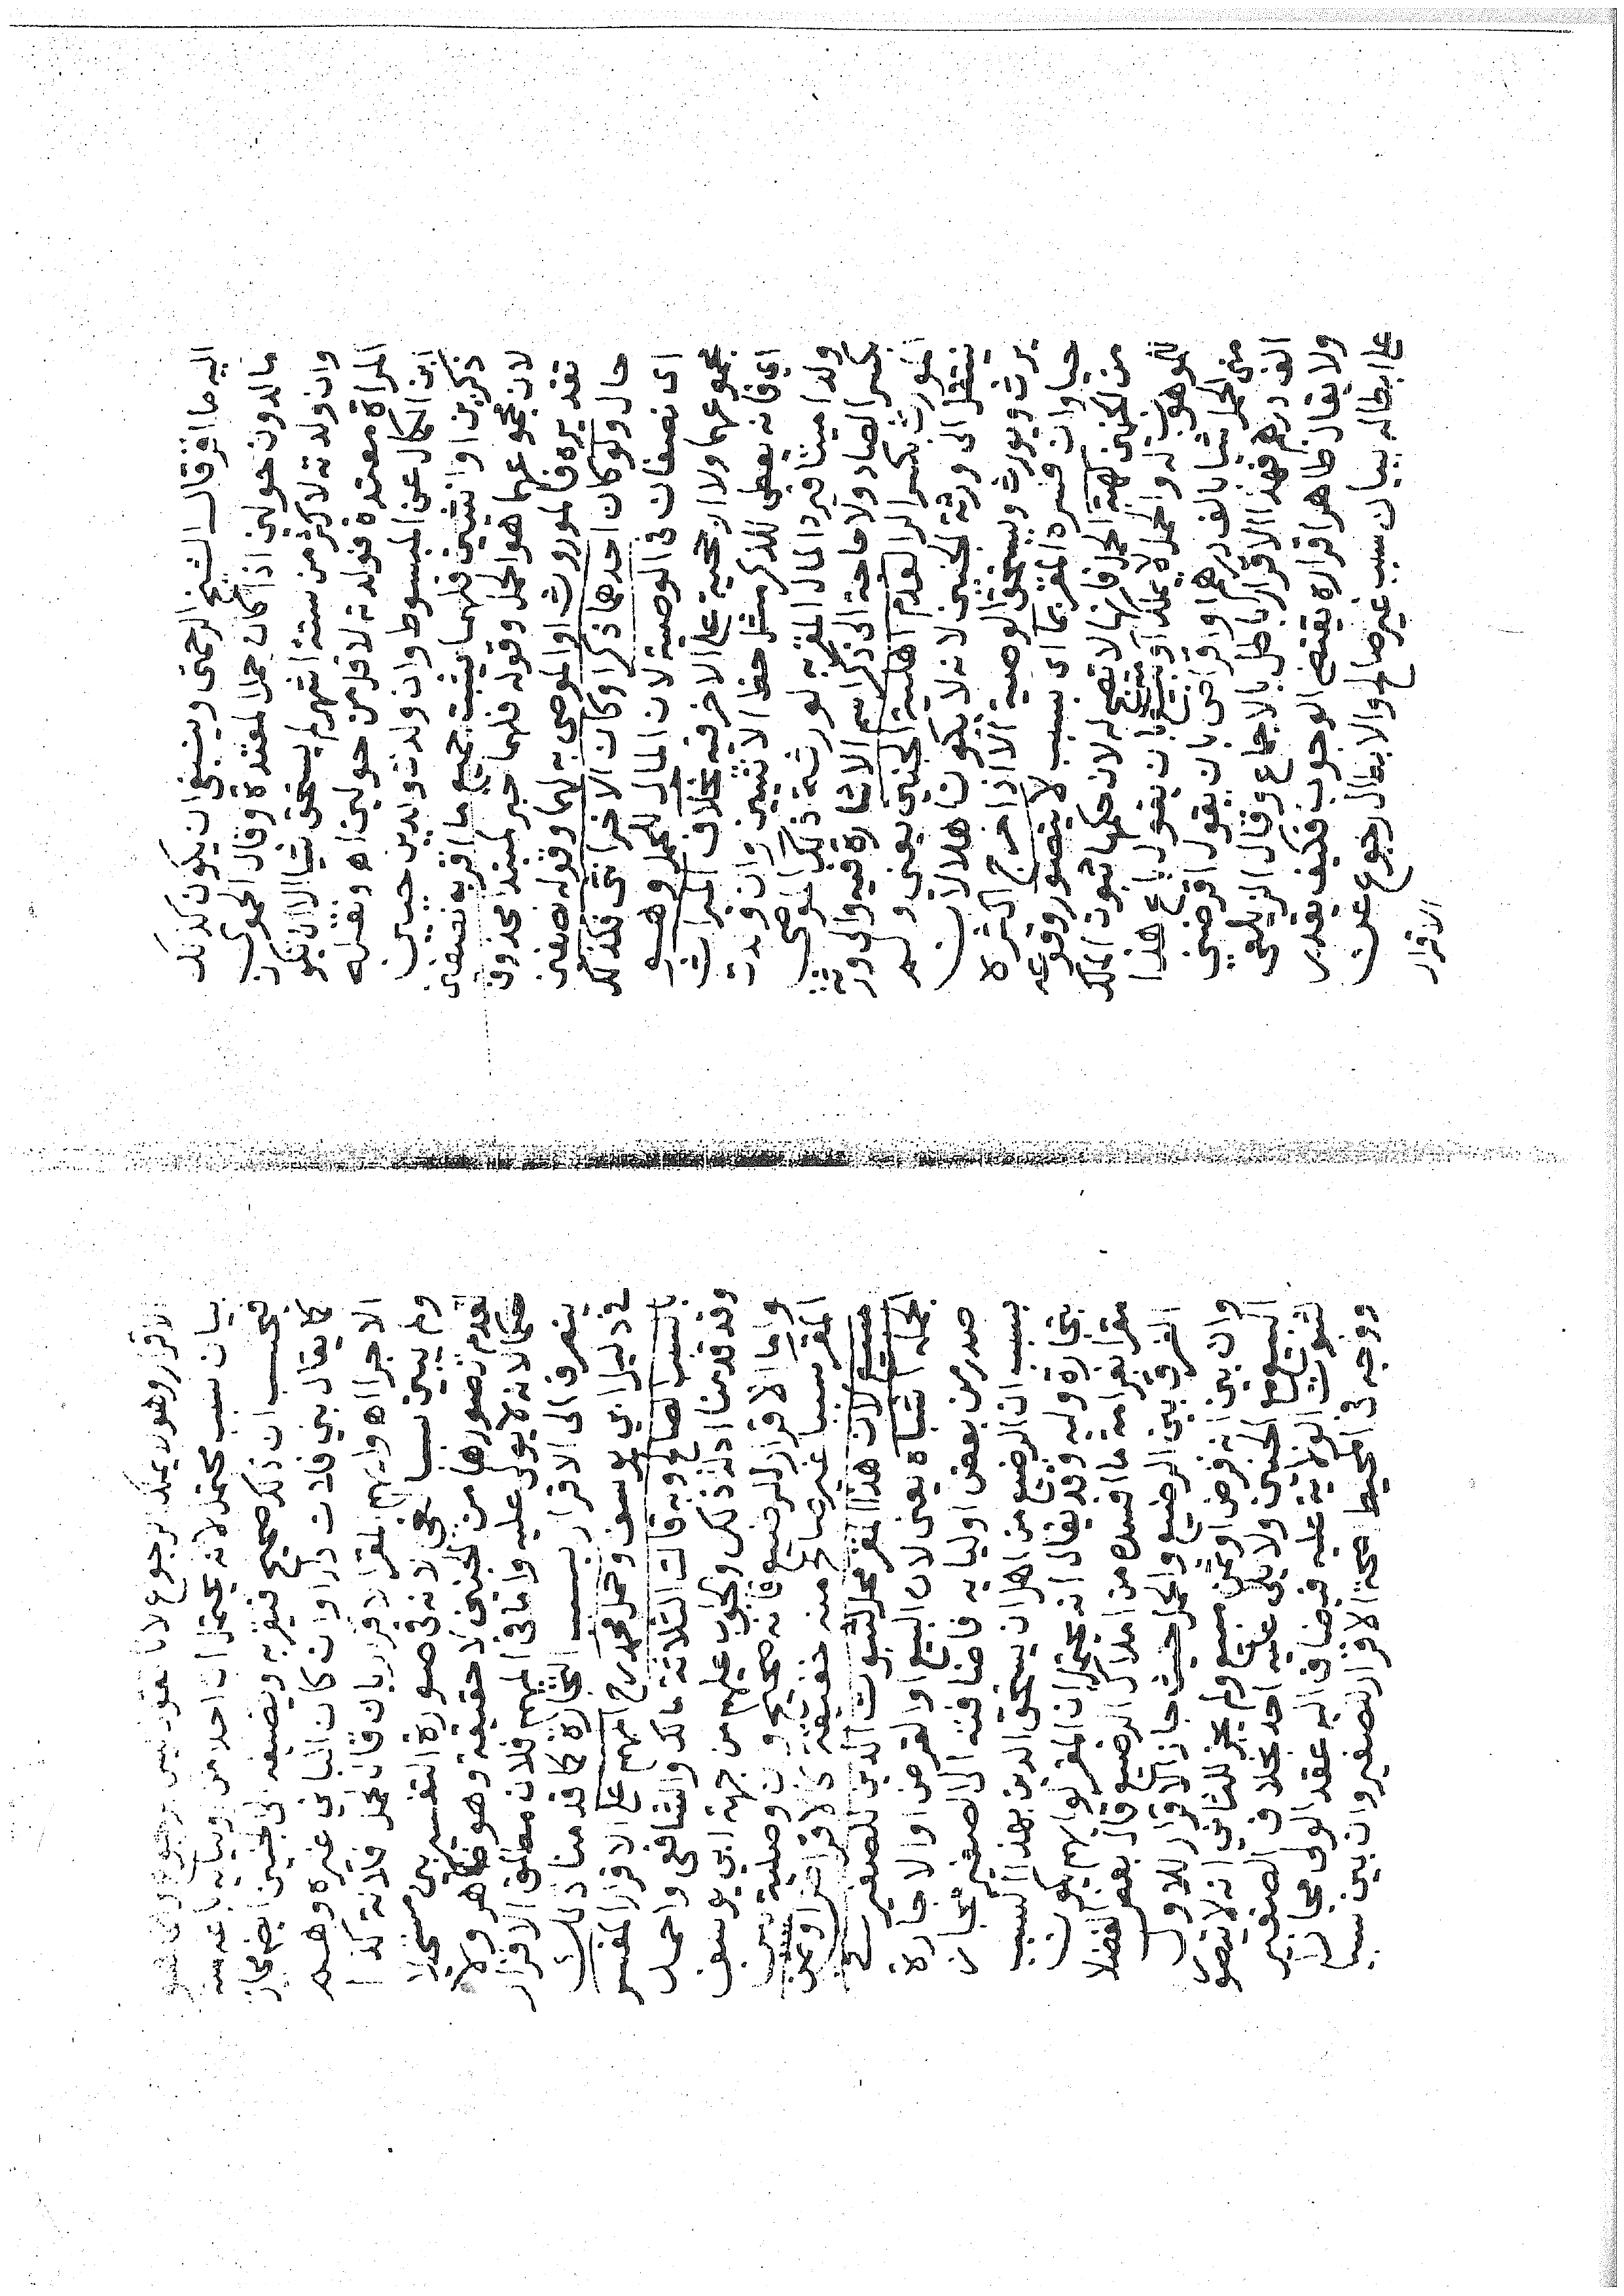 اليه ما اقر قال الشيخ الرحمتي وينبغي ان يكون كذلك
مالدون حولين اذا كان حملا لمعتدة وقال الحموي
وان ولدته لاكثر من ستة اشهر لم يستحق شيا الا ان تكون
المراة معتدة فولدته لاقل من حولين اه ونقله
ابن الكمال عن المبسوط وان ولدت ولدين حيين
ذكرين او انثيين فلهما يثبت جميع ما اقر به نصفين
لان مجموعهما هو الحمل وقوله فلهما خبر لمبتدا محذوف
تقديره فالموروث او الموصى به لهما وقوله نصفين
حال ولو كان احدهما ذكرا وكان الاخر انثى فكذلك
اى نصفان فى الوصية لان المال للحمل وهو
مجموعهما ولا ارجحية على الاخر فيه بخلاف الميراث
اى فانه يعطى للذكر مثل حظ الانثيين وان ولدت
ولدا ميتا فيرد المال المقر به لورثة ذلك الموصي
بكسر الصاد ولا حاجة الى ذكر اسم الاشارة فيه والى ورثة
المورث بكسر الرا لعدم اهلية الجنين يعني ولم
ينتقل الى ورثة الجنين لانه لا يكون اهلا لان
يرث ويورث ويستحق الوصية الا اذا خرج اكثره
حيا وان فسره المقر بما اى بسبب لا يتصور وقوعه
من الجنين كهبة الحمل فانها لا تصح له لان حكمها ثبوت الملك
للموهوب له والحمل لا يملك او بيع بان يقول باع هذا
مني الحمل شيا بالف درهم او اقراض بان يقول اقرضني
الف درهم فهذا الاقرار باطل بالاجماع وقال الزيلعي
ولا يقال ظاهر اقراره يقتضي الوجوب فكيف يقدر
على ابطاله ببيان سبب غير صالح والابطال رجوع عن
الاقرار
الاقرار وهو لا يملك الرجوع لانا نقول ليس برجوع وانما هو
بيان سبب محتمل لانه يحتمل ان احدا من اوليايه باعه منه
فحسب ان ذلك صحيح فيقر به ويضيفه الى الجنين اه مجازا
كما يقال بني فلان دارا وان كان الباني غيره وهم
الاجرا اه وان ابهم المقر الاقرار بان قال لحمل فلانة كذا
ولم يبين سببا لغى لانه فى صورة التفسير يبين مستحيلا
لعدم تصورها من الجنين لا حقيقة وهو ظاهر ولا
حكما لانه لا يولى عليه واما فى المبهم فلان مطلق الاقرار
ينصرف الى الاقرار بسبب التجارة كما قدمنا دليل
فى دليل ابي يوسف وحمل محمد رح المبهم على الاقرار المفسر
بالسبب الصالح وبه قالت الثلاثة مالك والشافعي واحمد
وقد قدمنا ادلة ذلك والجواب عليهم من جهة ابي يوسف
واما الاقرار للرضيع فانه صحيح وان وصلية بين
المقر سببا غير صالح منه حقيقة كالاقراض او ثمن
مبيع لان هذا المقر محل لثبوت الدين للصغير في
الجملة اشباه يعنى لان البيع او القرض او الاجارة
صدر من بعض اوليايه فاضافته الى الصغير مجاز
بسبب ان الرضيع من اهل ان يستحق الدين بهذا السبب
بتجارة وليه وقد يقال انه يحتمل ان المقر لو ابهم يكون
مقرا بغرامة ما افسده من املاك الرضيع قال بعض الفضلا
الفرق بين الرضيع والحمل حيث جاز الاقرار للاول
وان بين انه قرض او ثمن مبيع ولم يجز للثاني انه لا يتصور
البيع مع الجنين ولا يلي عليه احد بخلاف الصغير
لثبوت الولاية عليه فيضاف اليه عقد الولى مجازا
ووجه فى المحيط صحة الاقرار للصغير وان بين سببا